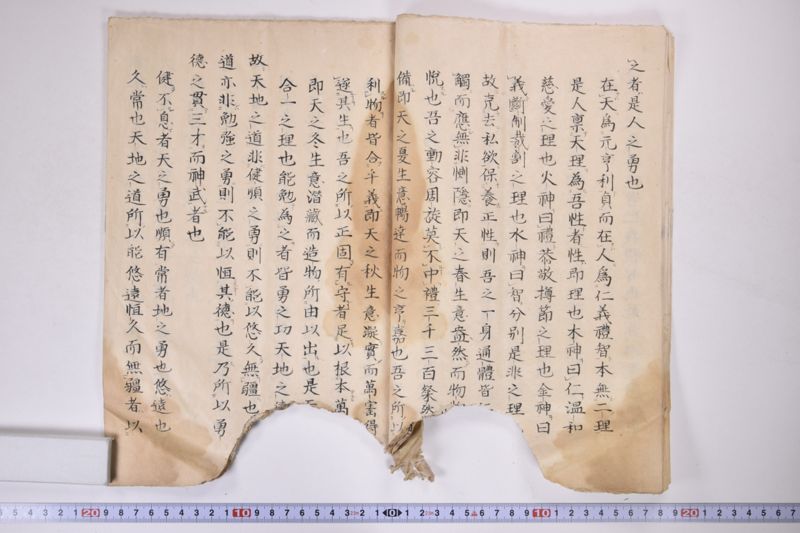 之者是人之勇也
在天爲元亨利貞而在人爲仁義禮智本無二理
是人禀天理爲吾性者性即理也木神曰仁溫和
慈愛之理也火神曰禮恭敬撙節之理也金神曰
義斷制裁割之理也水神曰智分別是非之理
故克去私欲保養正性則吾之一身通體皆
觸而應無非惻隱即天之春生意盎然而物
悅也吾之動容周旋莫不中禮三千三百粲然
備即天之夏生意暢達而物之亨嘉也吾之所以
利物者皆合乎義即天之秋生意凝實而萬寶得
遂其生也吾之所以正固有守者足以根本萬
即天之冬生意潛藏而造物所由以出也是
合一之理也能勉爲之者皆勇之功天地之
故天地之道非健順之勇則不能以悠久無疆也
道亦非勉強之勇則不能以恒其德也是乃所以勇
德之貫三才而神武者也
健不息者天之勇也順有常者地之勇也悠遠也
久常也天地之道所以能悠遠恒久而無疆者以